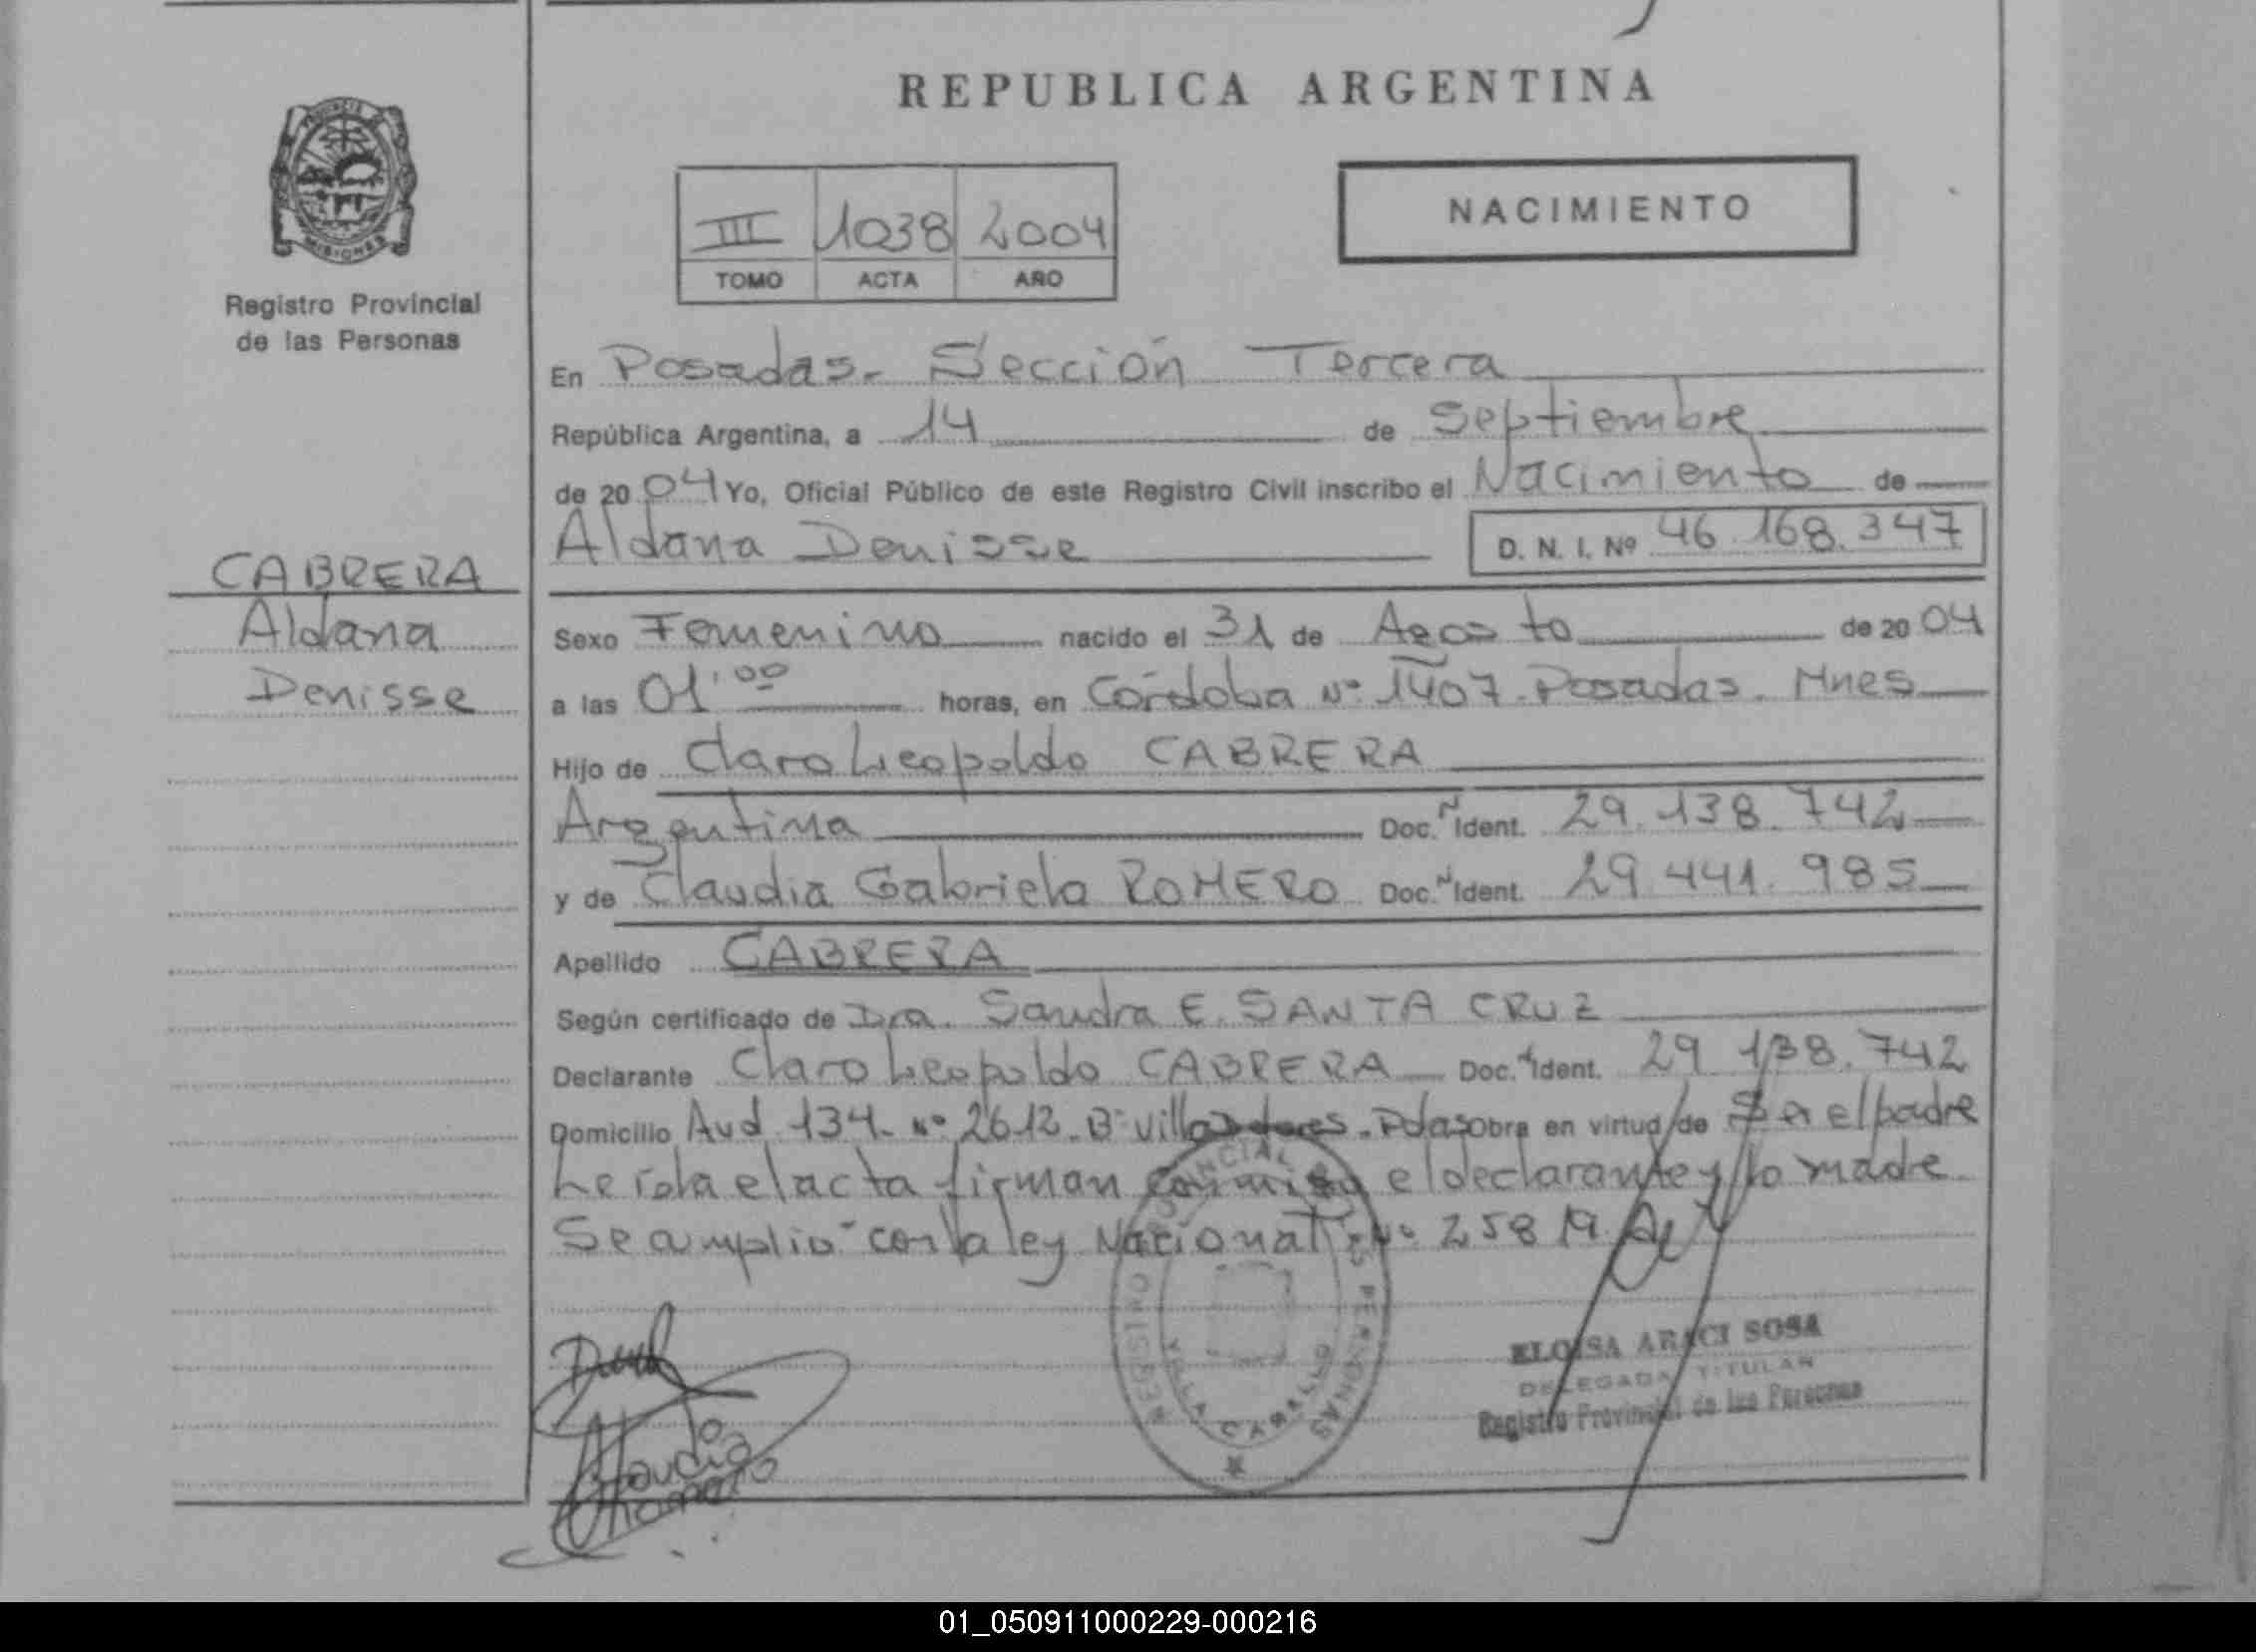 REPUBLICA ARGENTINA
PROVINCIA DE
MISIONES
Registro Provincial
de las Personas
III 1038 2004
TOMO ACTA AÑO
NACIMIENTO
En Posadas. Sección Tercera
República Argentina, a 14 de Septiembre
de 2004 Yo, Oficial Público de este Registro Civil inscribo el Nacimiento de
Aldana Denisse D. N. I. Nº 46.168.347
CABRERA
Aldana
Denisse
Sexo Femenino nacido el 31 de Agosto de 2004
a las 01'00 horas, en Córdoba Nº 1407. Posadas. Mnes
Hijo de Claro Leopoldo CABRERA
Argentina Doc. Ident. 29.138.742
y de Claudia Gabriela ROMERO Doc. Ident. 29.441.985
Apellido CABRERA
Según certificado de Dra. Sandra E. SANTA CRUZ
Declarante Claro Leopoldo CABRERA Doc. Ident. 29.138.742
Domicilio Avd 134. Nº 2612. Bº Villa Pdas obra en virtud de Ser el padre
Leída el acta firman conmigo el declarante y la madre
Se amplió con la ley Nacional Nº 25819.
REGISTRO PROVINCIAL DE LAS PERSONAS
VILLA CABELLO
ELOISA ARACI SOSA
DELEGADA TITULAR
Registro Provincial de las Personas
Claudia
Romero
01_050911000229-000216